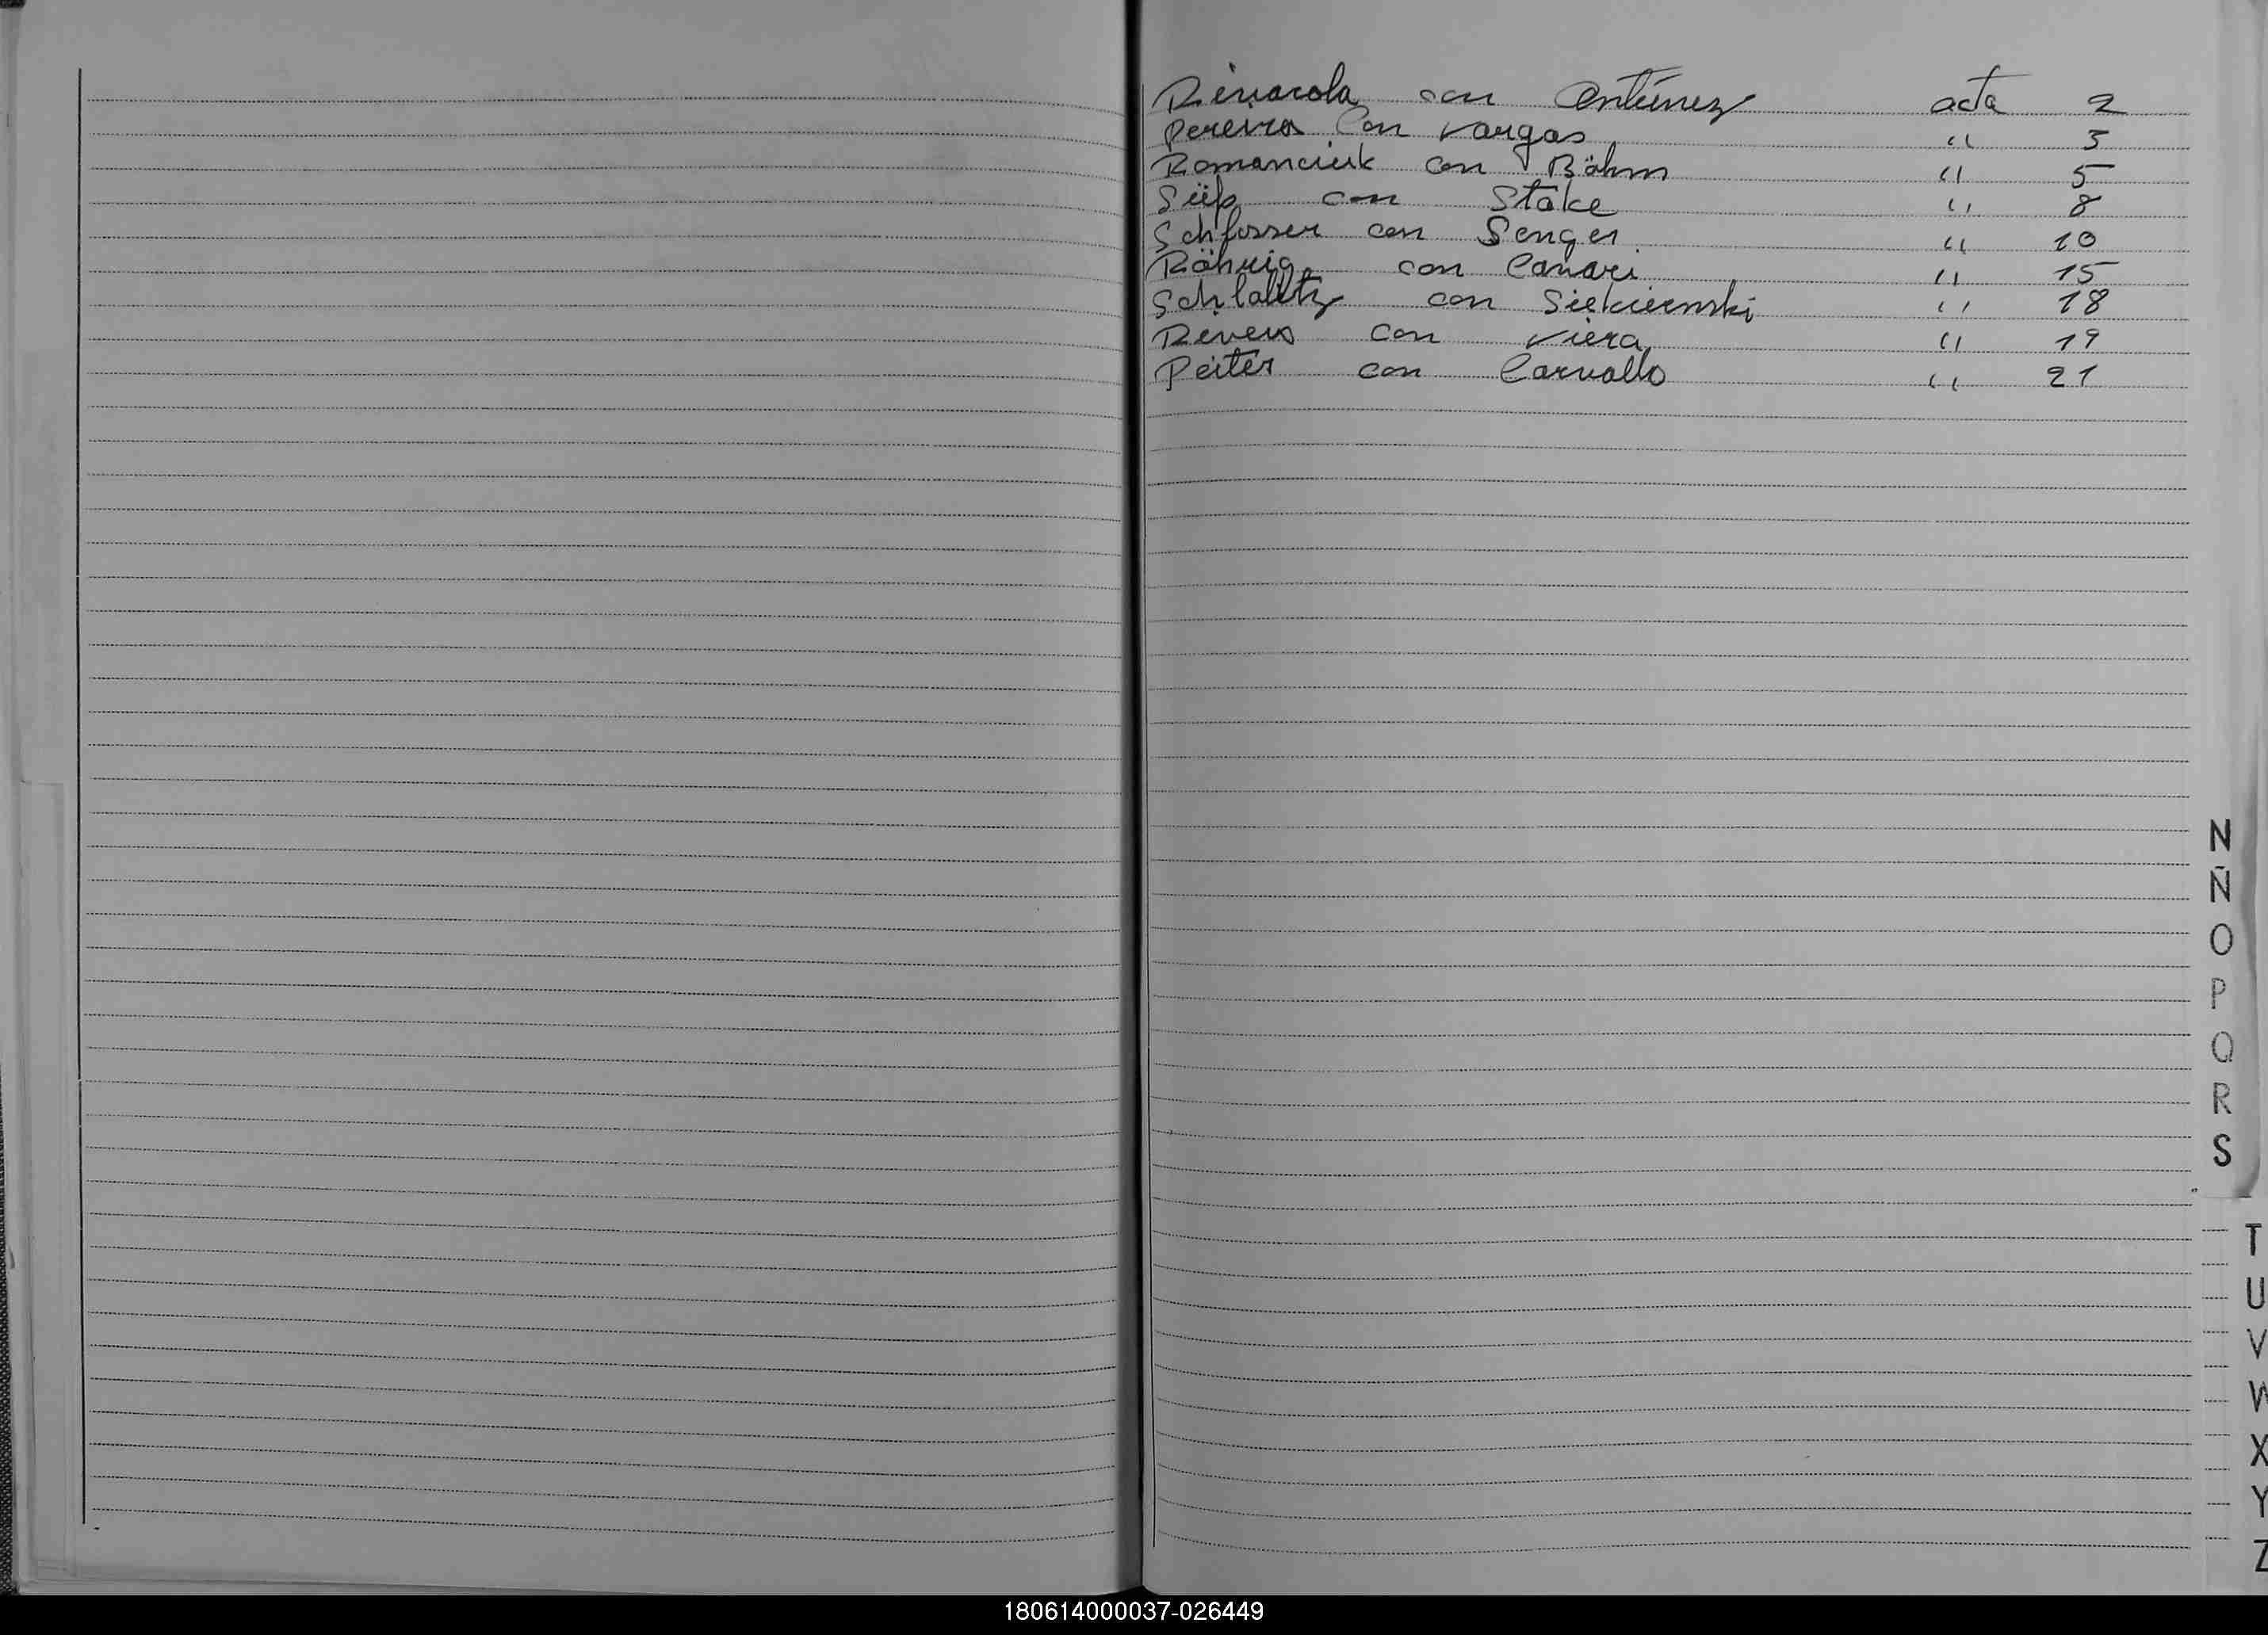 Rivarola con Antúnez acta 2
Pereira con Vargas " 3
Romanciuk con Böhm " 5
Süß con Stake " 8
Schlosser con Senger " 10
Röhrig con Canari " 15
con Siekierski " 18
con Viera " 19
Peiter con Carvallo " 21
N
Ñ
O
P
Q
R
S
T
U
V
W
X
Y
Z
180614000037-026449